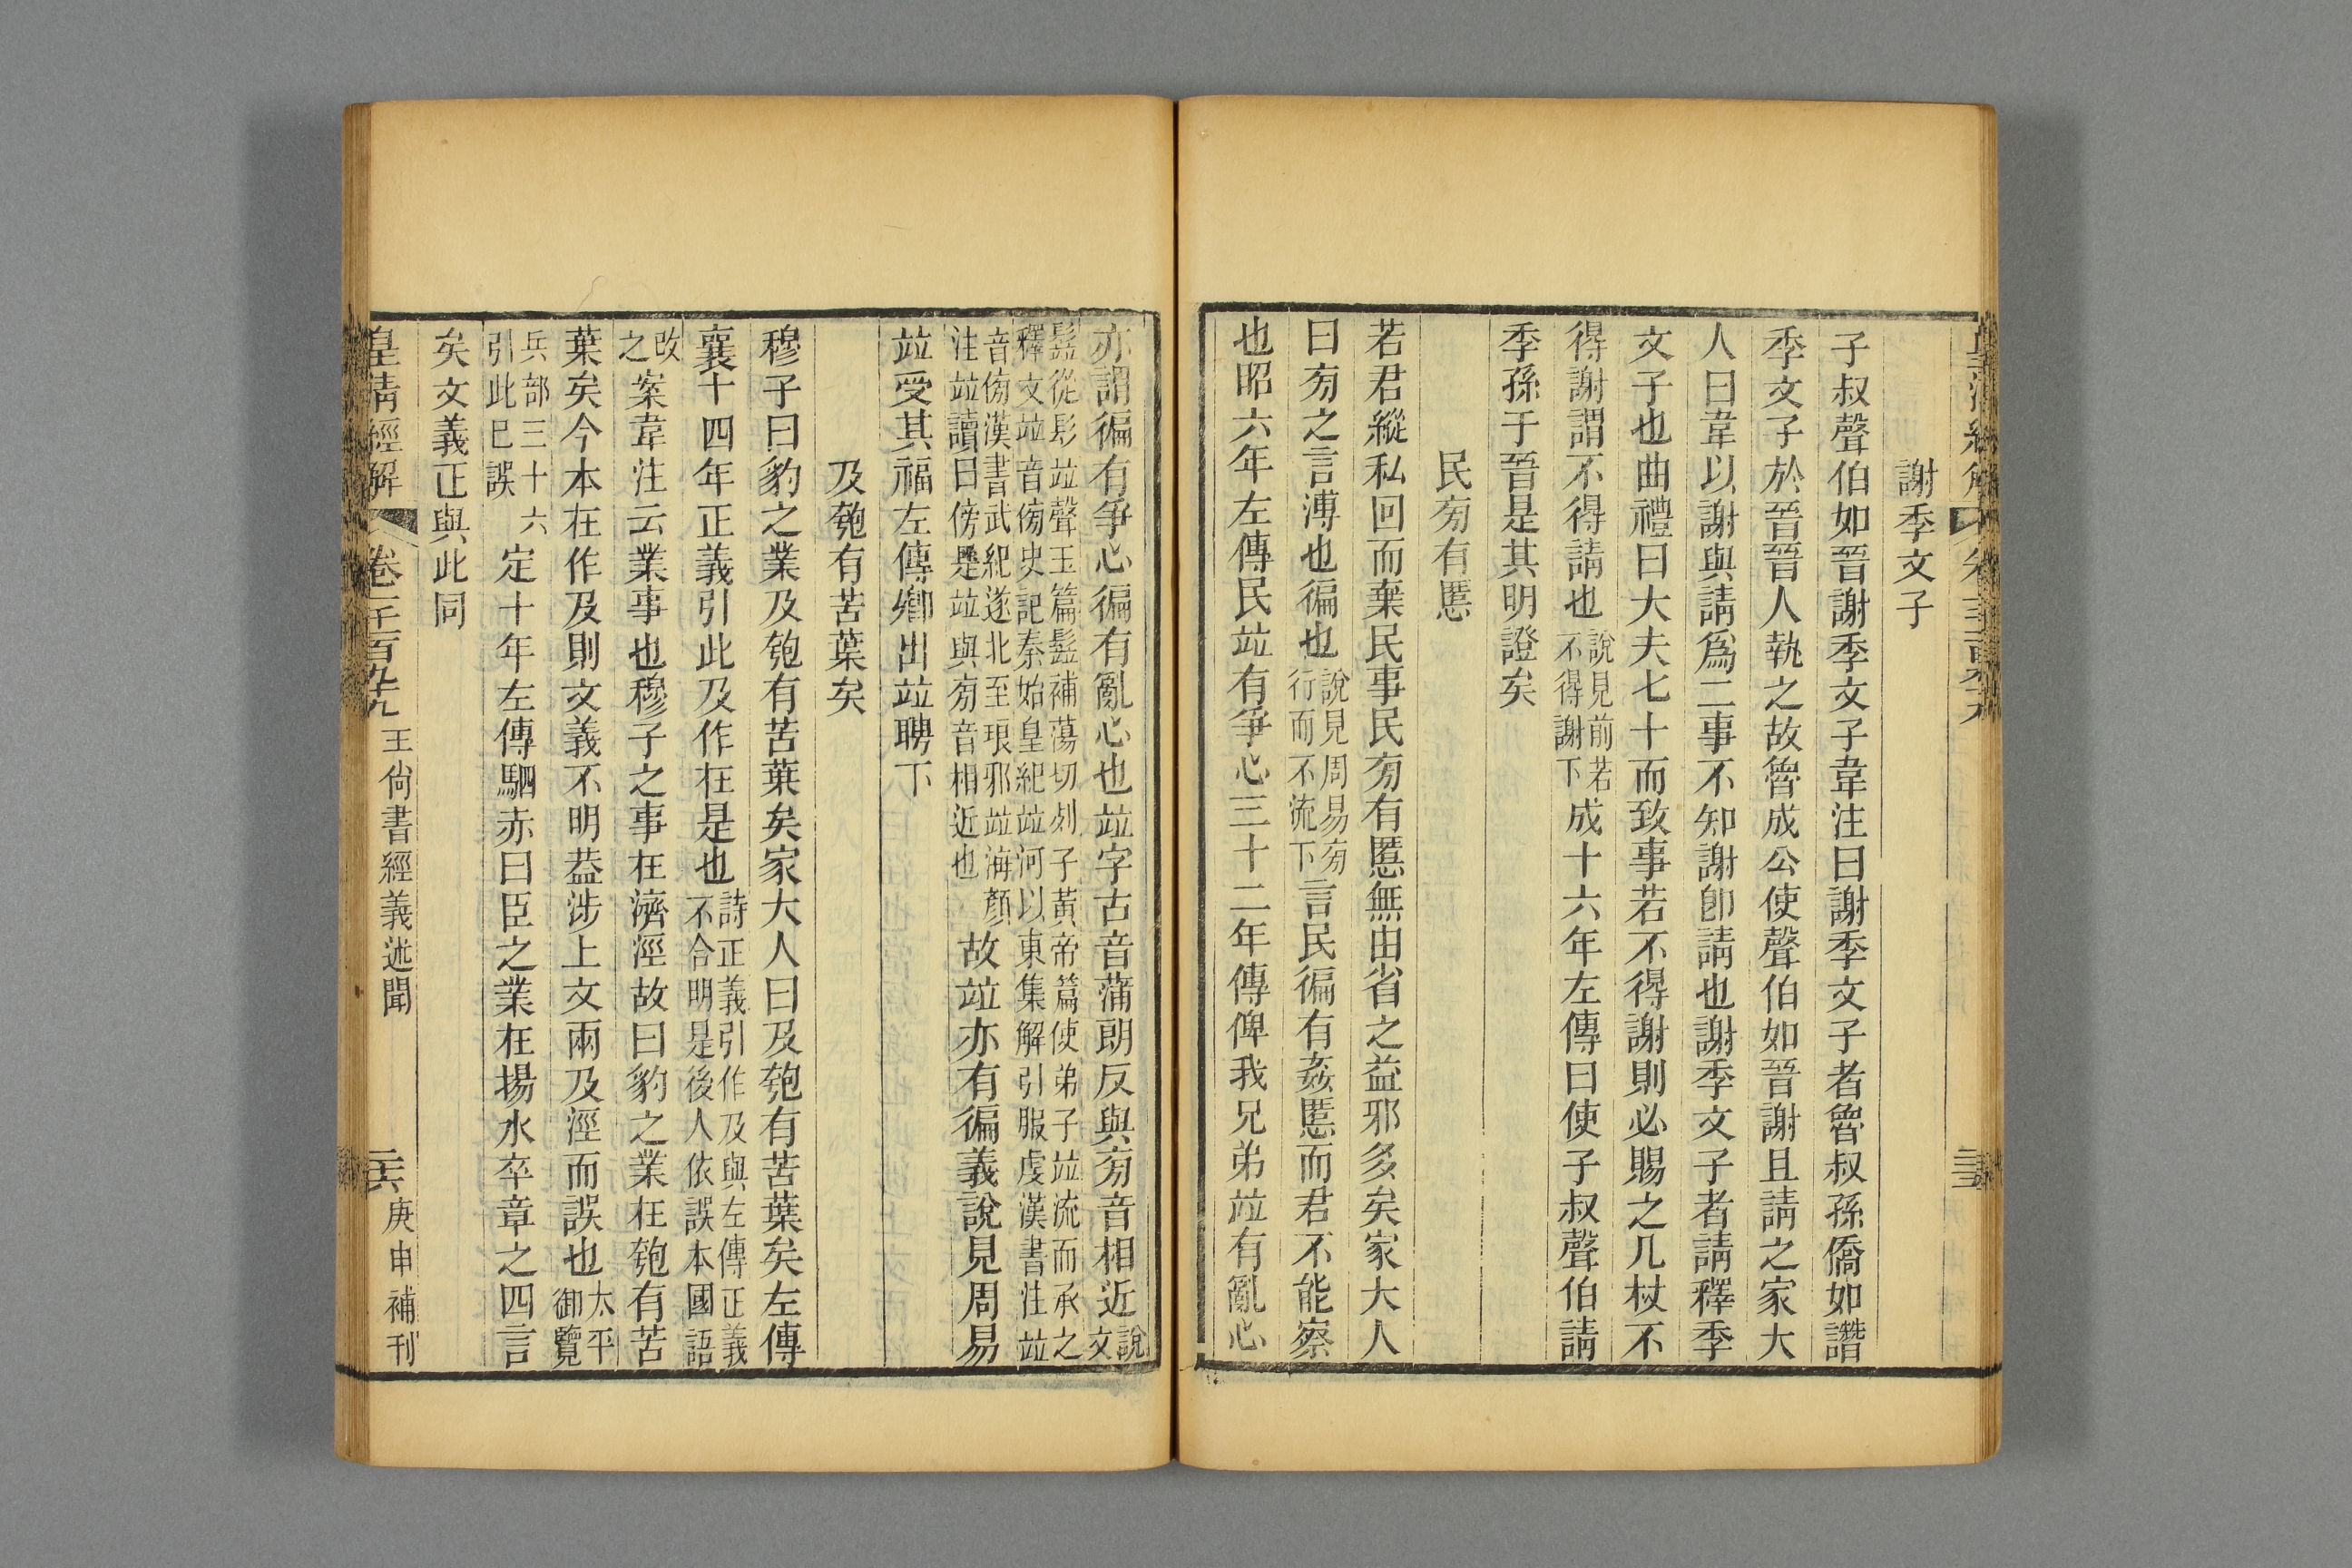 謝季文子
子叔聲伯如晉謝季文子韋注曰謝季文子者魯叔孫僑如譖
季文子於晉晉人執之故魯成公使聲伯如晉謝且請之家大
人曰韋以謝與請爲二事不知謝卽請也謝季文子者請釋季
文子也曲禮曰大夫七十而致事若不得謝則必賜之几杖不
得謝謂不得請也說見前若不得謝下成十六年左傳曰使子叔聲伯請
季孫于晉是其明證矣
民㫄有慝
若君縱私回而棄民事民㫄有慝無由省之益邪多矣家大人
曰㫄之言溥也徧也說見周易㫄行而不流下言民徧有姦慝而君不能察
也昭六年左傳民竝有爭心三十二年傳俾我兄弟竝有亂心
亦謂徧有爭心徧有亂心也竝字古音蒲朗反與㫄音相近說文
髷從髟竝聲玉篇髷補蕩切列子黃帝篇使弟子竝流而承之
釋文竝音傍史記秦始皇紀竝河以東集解引服虔漢書注竝
音傍漢書武紀遂北至琅邪竝海顏
注竝讀曰傍是竝與㫄音相近也故竝亦有徧義說見周易
竝受其福左傳卿出竝聘下
及匏有苦葉矣
穆子曰豹之業及匏有苦葉矣家大人曰及匏有苦葉矣左傳
襄十四年正義引此及作在是也詩正義引作及與左傳正義不合明是後人依誤本國語
改之案韋注云業事也穆子之事在濟涇故曰豹之業在匏有苦
葉矣今本在作及則文義不明葢涉上文兩及涇而誤也太平御覽
兵部三十六引此已誤定十年左傳駟赤曰臣之業在揚水卒章之四言
矣文義正與此同
皇淸經解 卷一千一百九十九 王尙書經義述聞 二六 庚申補刊